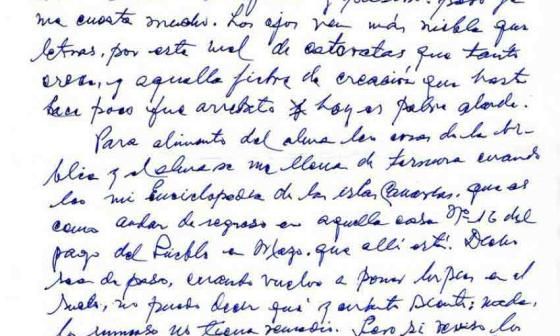 me cuesta mucho. Los ojos ven más niebla que
letras, por este mal de cataratas que tanto
crece, y aquella fiebre de creación que hasta
hace poco fue arrebato y hoy es pobre alarde.
Para alimento del alma leo cosas de la bi-
blia y el alma se me llena de ternura cuando
leo mi Enciclopedia de las islas Canarias, que es
como andar de regreso en aquella casa Nº 16 del
pago del Pueblo en Mazo, que allí está.
de paso, cuando vuelvo a poner los pies en el
suelo, no puedo decir qué siento; nada,
lo no tiene remedio. Pero si reviso los